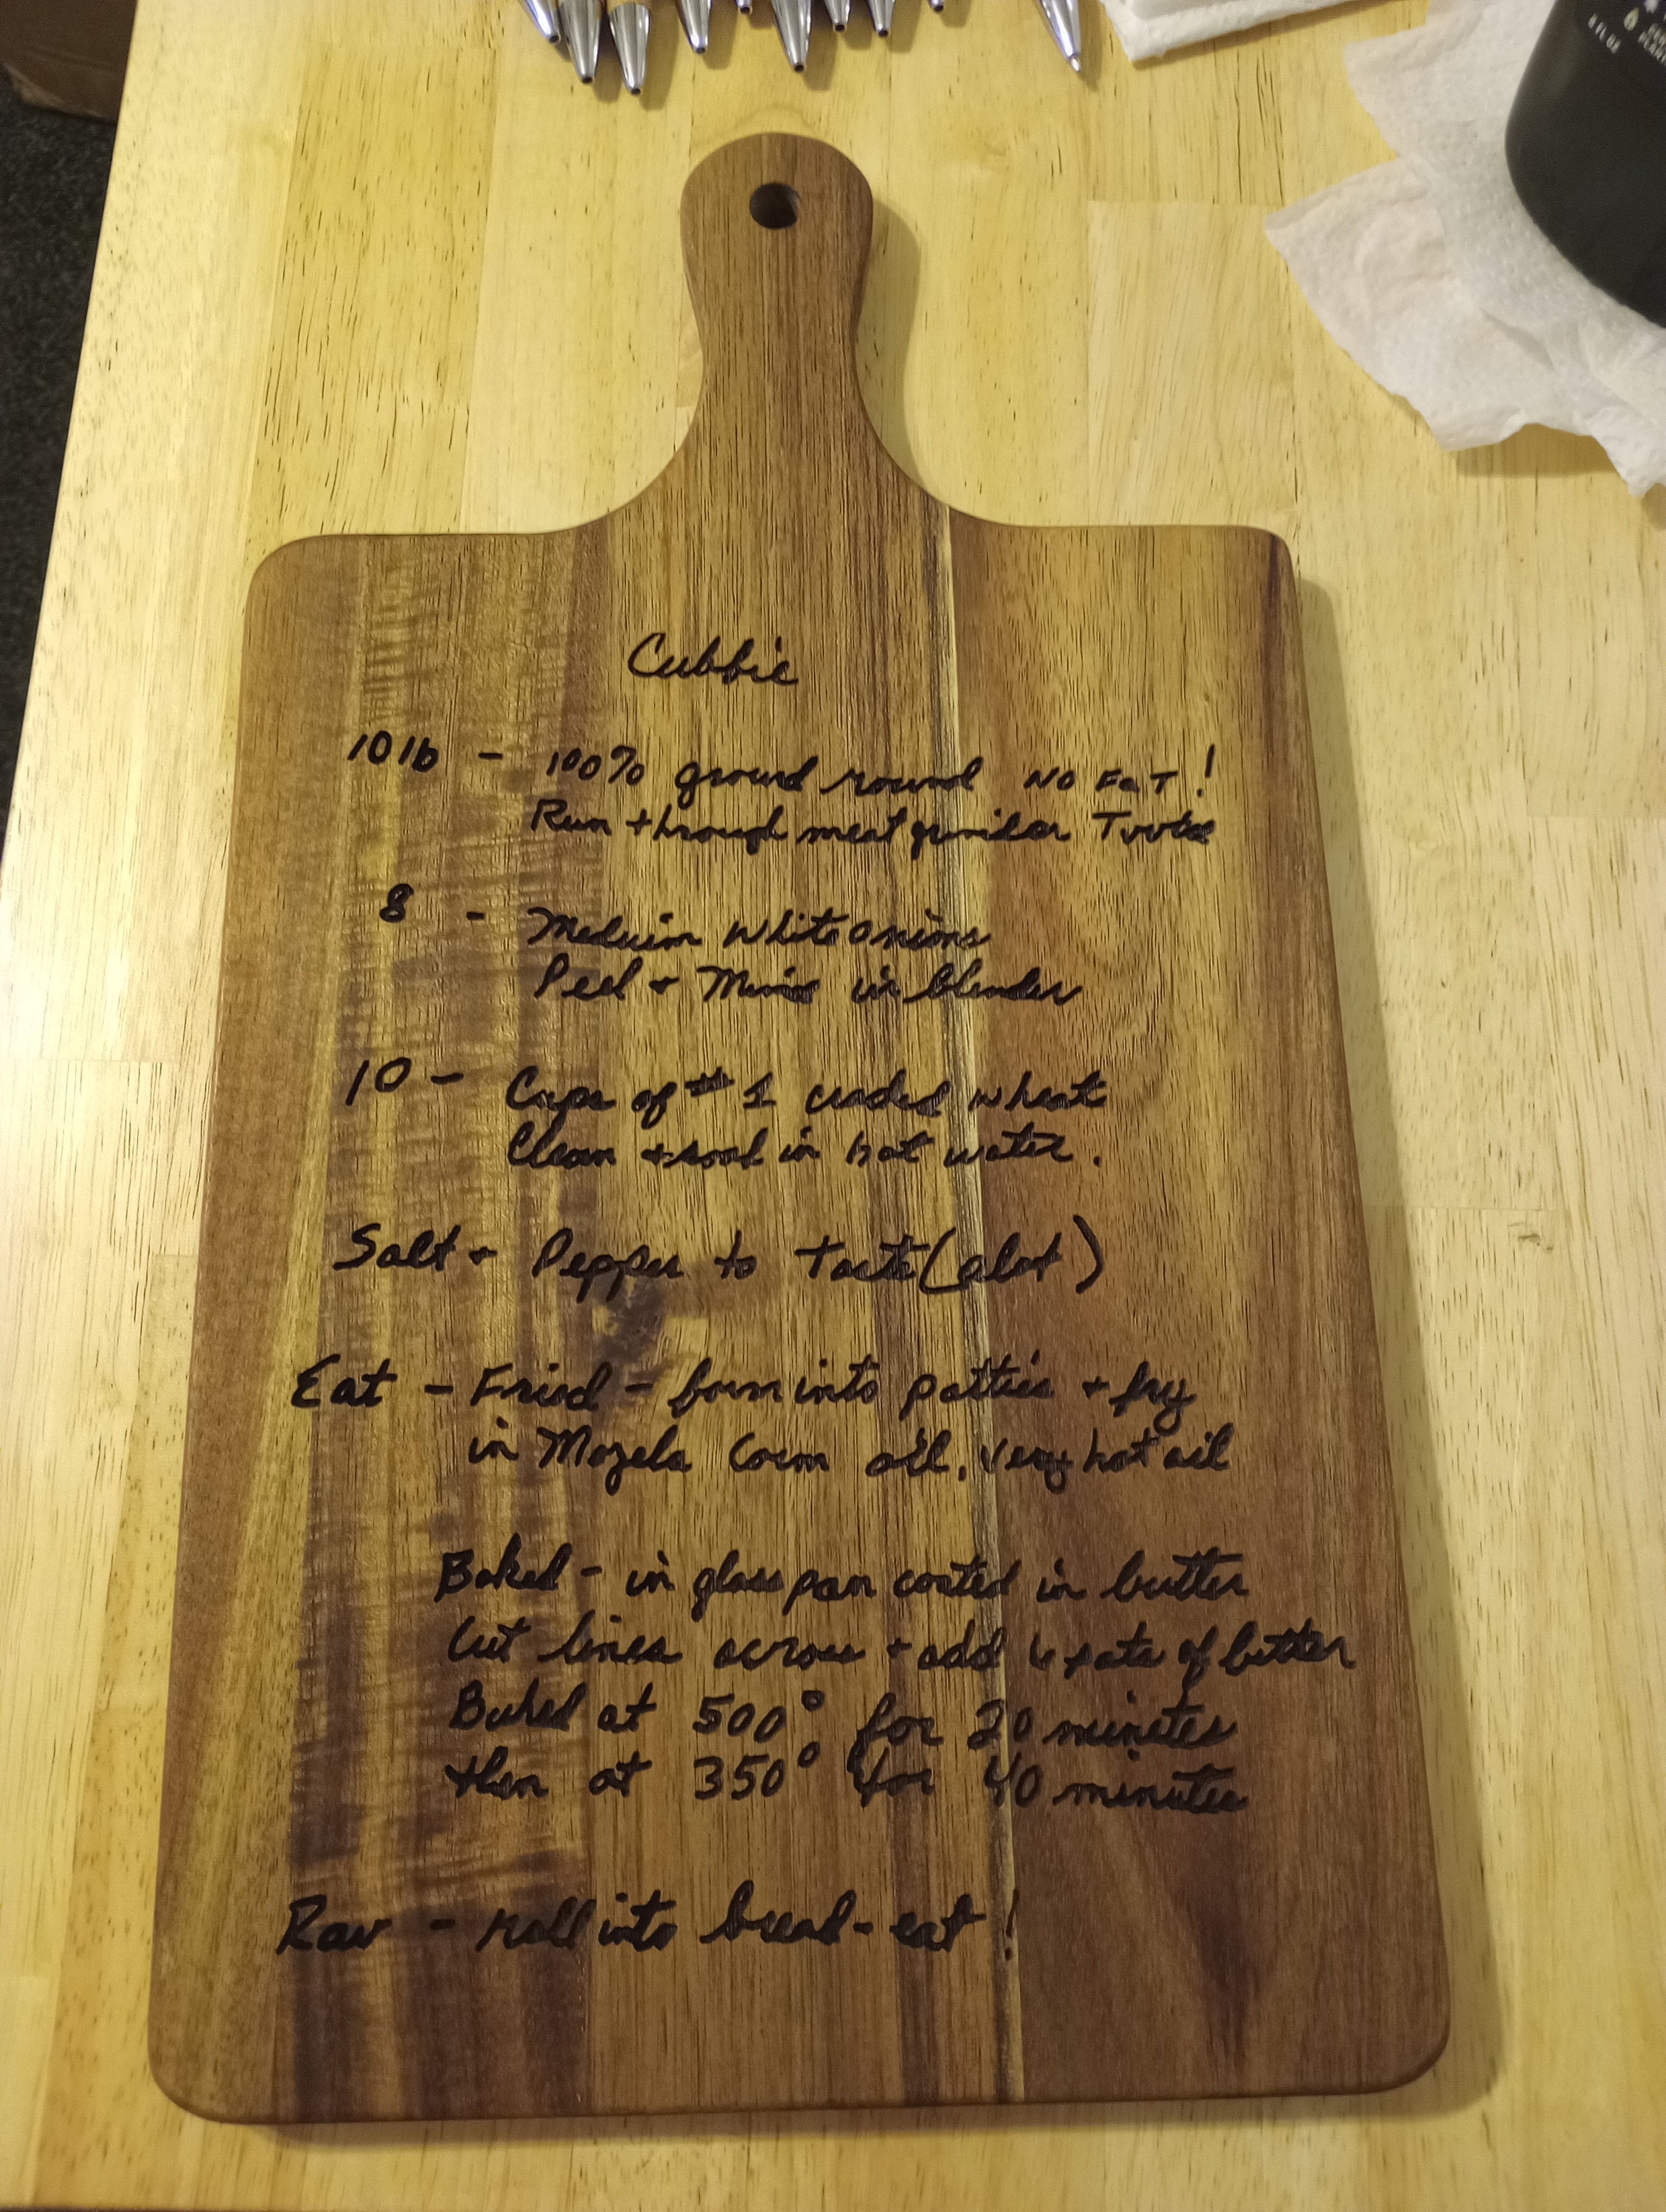 Cubbie
10 lb - 100% ground round NO FaT!
Run through meat grinder Twice
8 - Medium white onions
Peel + Mince in blender
10 - Cups of #1 cracked wheat
Clean + soak in hot water.
Salt + Pepper to Taste (alot)
Eat - Fried - form into patties + fry
in Mozela Corn oil, very hot oil
Baked - in glass pan coated in butter
Cut lines across + add 6 pats of butter
Baked at 500° for 20 minutes
then at 350° for 40 minutes
Raw - roll into bread - eat!
8 FL OZ